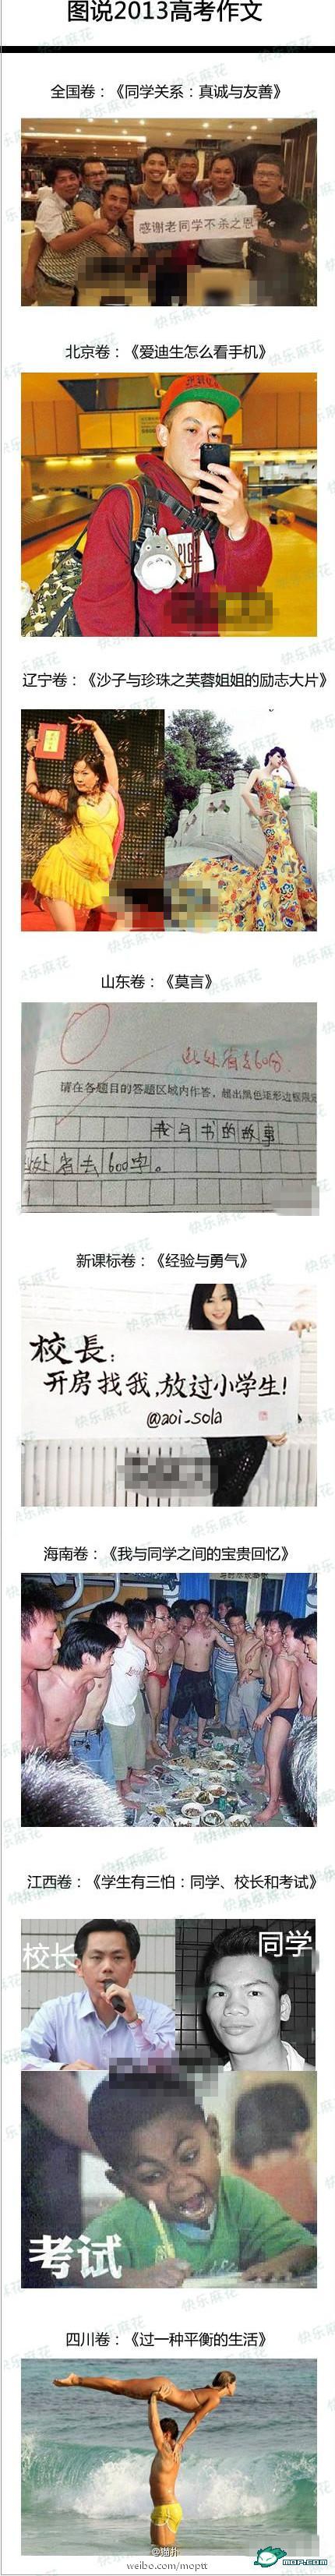 图说2013高考作文
全国卷：《同学关系：真诚与友善》
感谢老同学不杀之恩
北京卷：《爱迪生怎么看手机》
辽宁卷：《沙子与珍珠之芙蓉姐姐的励志大片》
山东卷：《莫言》
此处省去60分
请在各题目的答题区域内作答，超出黑色矩形边框限定
我与书的故事
此处省去600字。
新课标卷：《经验与勇气》
校長：
开房找我,放过小学生!
@aoi_sola
海南卷：《我与同学之间的宝贵回忆》
江西卷：《学生有三怕：同学、校长和考试》
校长
同学
考试
四川卷：《过一种平衡的生活》
weibo.com/moptt
MOP.COM
快乐麻花